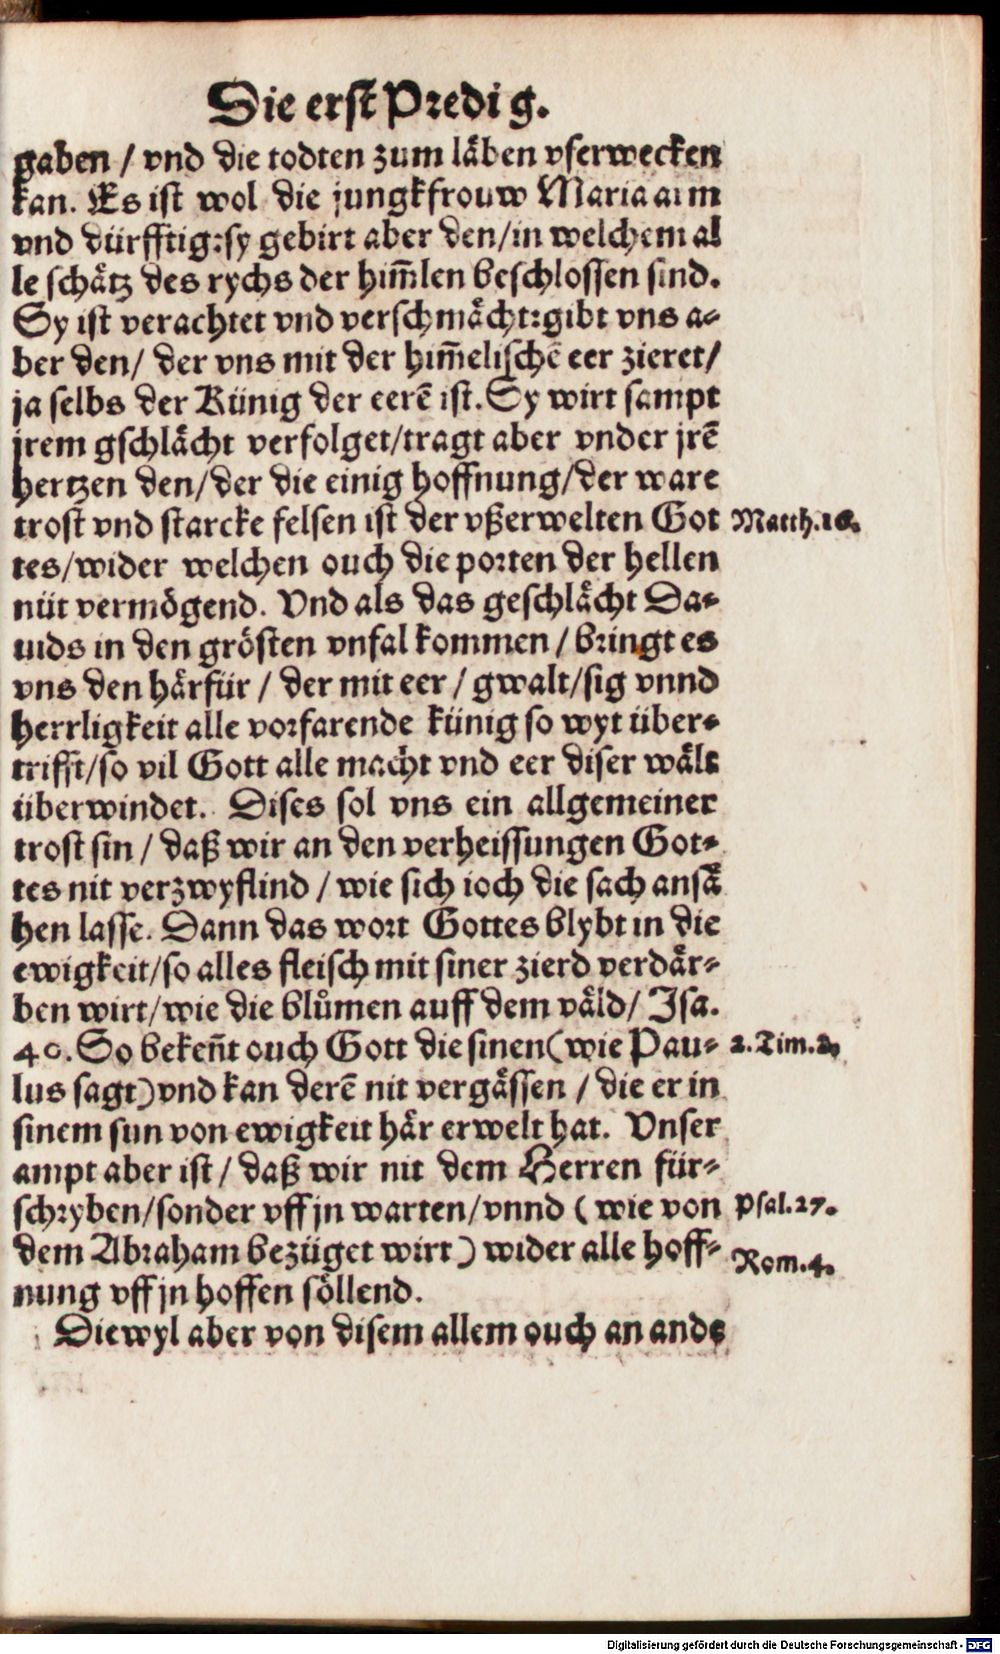 Die erst Predig.
gaben / vnd die todten zum läben vferwecken
kan. Es ist wol die jungkfrouw Maria arm
vnd dürfftig: sy gebirt aber den / in welchem al
le schätz des rychs der him̃len beschlossen sind.
Sy ist verachtet vnd verschmächt: gibt vns a-
ber den / der vns mit der him̃elischē eer zieret /
ja selbs der Künig der eerē ist. Sy wirt sampt
jrem gschlächt verfolget / tragt aber vnder jrē
hertzen den / der die einig hoffnung / der ware
trost vnd starcke felsen ist der vßerwelten Got
Matth.16.
tes / wider welchen ouch die porten der hellen
nüt vermögend. Vnd als das geschlächt Da-
uids in den grösten vnfal kommen / bringt es
vns den härfür / der mit eer / gwalt / sig vnnd
herrligkeit alle vorfarende künig so wyt über-
trifft / so vil Gott alle macht vnd eer diser wält
überwindet. Dises sol vns ein allgemeiner
trost sin / daß wir an den verheissungen Got-
tes nit verzwyflind / wie sich ioch die sach ansä
hen lasse. Dann das wort Gottes blybt in die
ewigkeit / so alles fleisch mit siner zierd verdär-
ben wirt / wie die blůmen auff dem väld / Isa.
40. So bekeñt ouch Gott die sinen (wie Pau-
2. Tim. 2.
lus sagt) vnd kan derē nit vergässen / die er in
sinem sun von ewigkeit här erwelt hat. Vnser
ampt aber ist / daß wir nit dem Herren für-
schryben / sonder vff jn warten / vnnd ( wie von
Psal.27.
dem Abraham bezüget wirt ) wider alle hoff-
Rom.4.
nung vff jn hoffen söllend.
Diewyl aber von disem allem ouch an ande
Digitalisierung gefördert durch die Deutsche Forschungsgemeinschaft - DFG